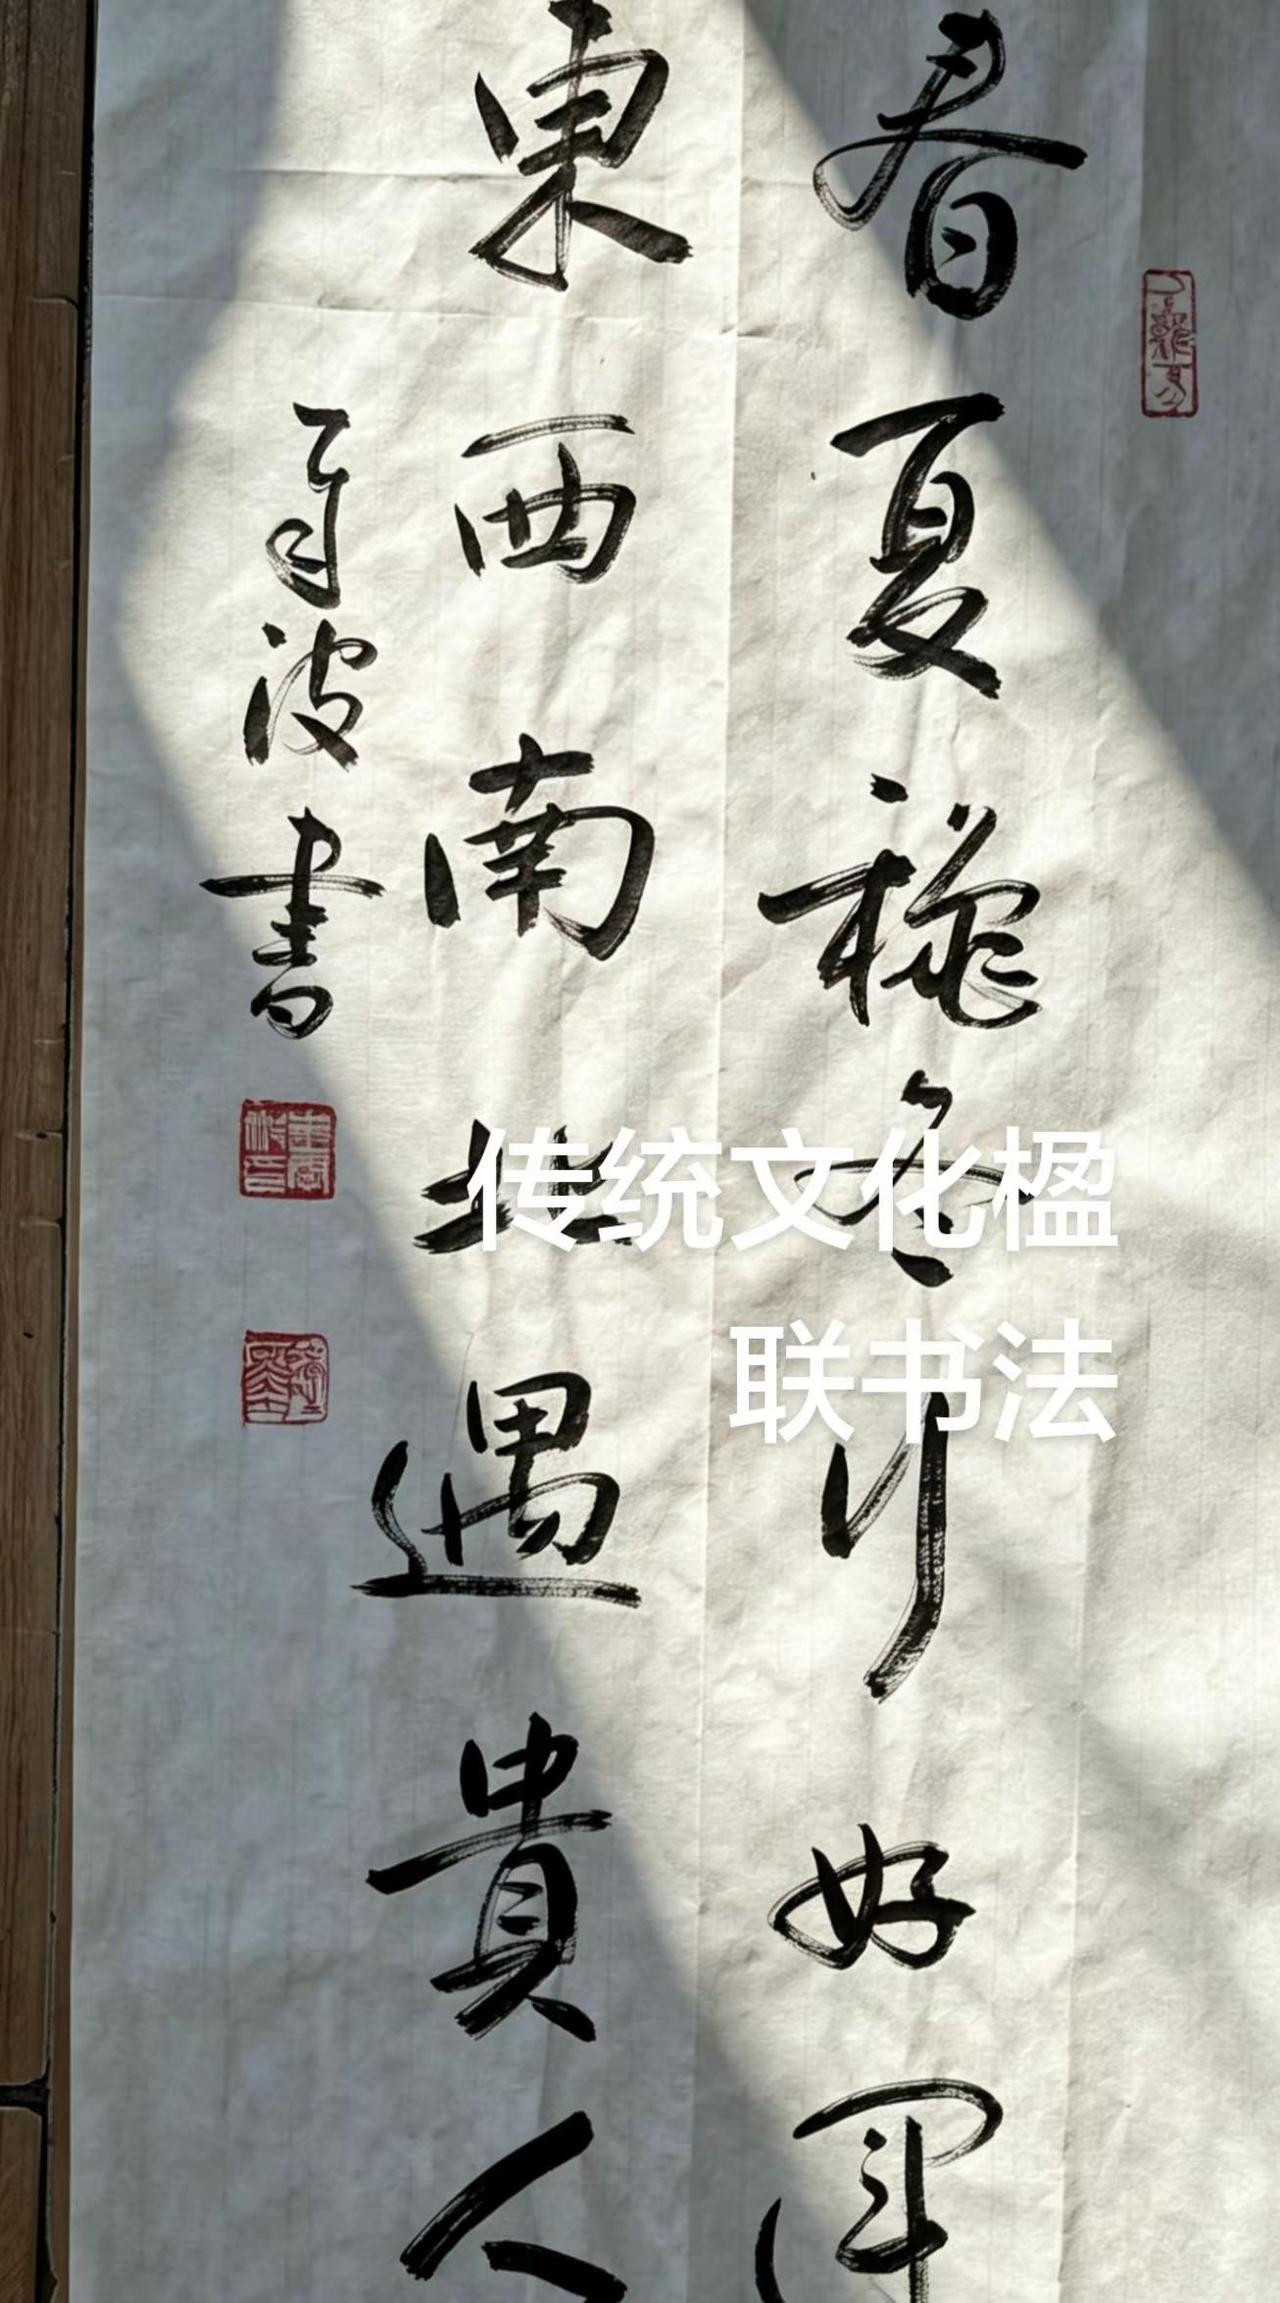 春夏穐冬行好運
東西南北遇貴人
波書
传统文化楹
联书法